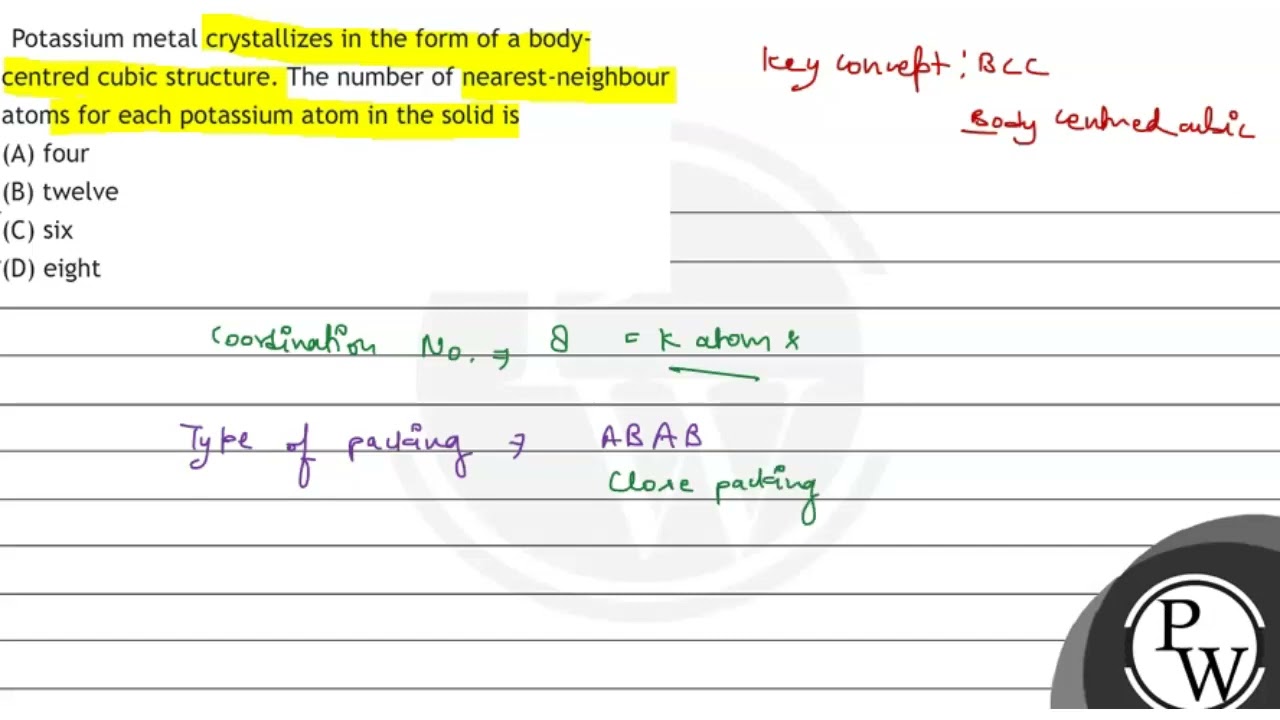 Potassium metal crystallizes in the form of a body-
centred cubic structure. The number of nearest-neighbour
atoms for each potassium atom in the solid is
(A) four
(B) twelve
(C) six
(D) eight
Key concept: BCC
Body centred cubic
Coordination No. ⇒ 8 = K atom *
Type of packing ⇒ ABAB
Close packing
PW